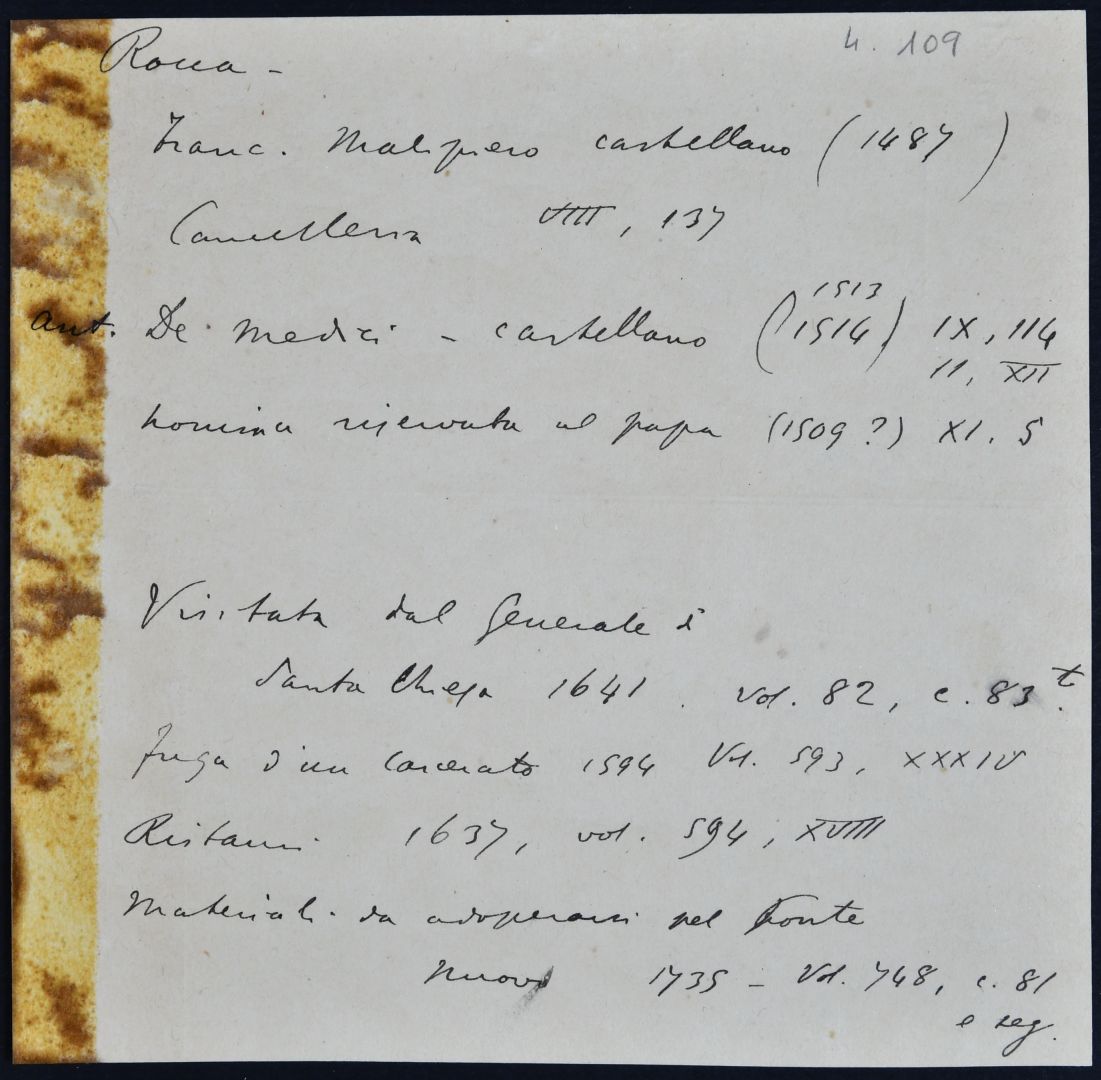 4. 109
Rocca -
Franc. Malipiero castellano (1487)
Cancelleria VIIII, 137
1513
ant. De Medici - castellano (1514) IX, 114
11, XII
nomina riservata al papa (1509?) XI. 5
Visitata dal Generale di
Santa Chiesa 1641. vol. 82, c. 83 t.
fuga d'un carcerato 1594 Vol. 593, XXXIV
Ristauri 1637, vol. 594, XVIII
Materiali da adoperarsi pel Ponte
nuovo 1735 - Vol. 748, c. 81
e seg.